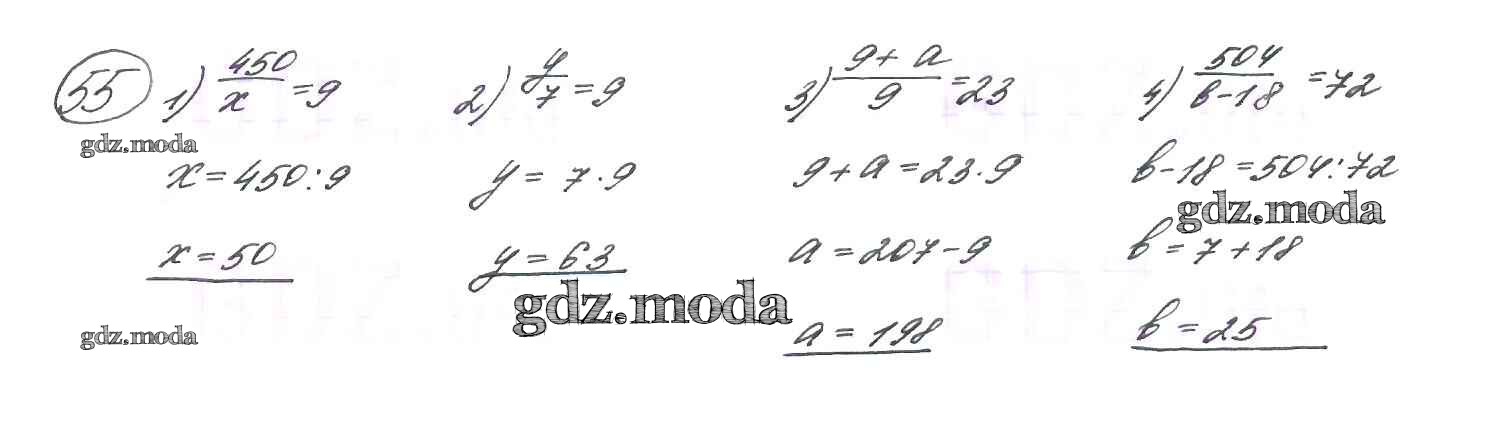 55 1) 450/x = 9 2) y/7 = 9 3) 9 + a/9 = 23 4) 504/b - 18 = 72
gdz.moda
x = 450 : 9 y = 7 · 9 9 + a = 23 · 9 b - 18 = 504 : 72
gdz.moda
x = 50 y = 63 a = 207 - 9 b = 7 + 18
gdz.moda
gdz.moda a = 198 b = 25